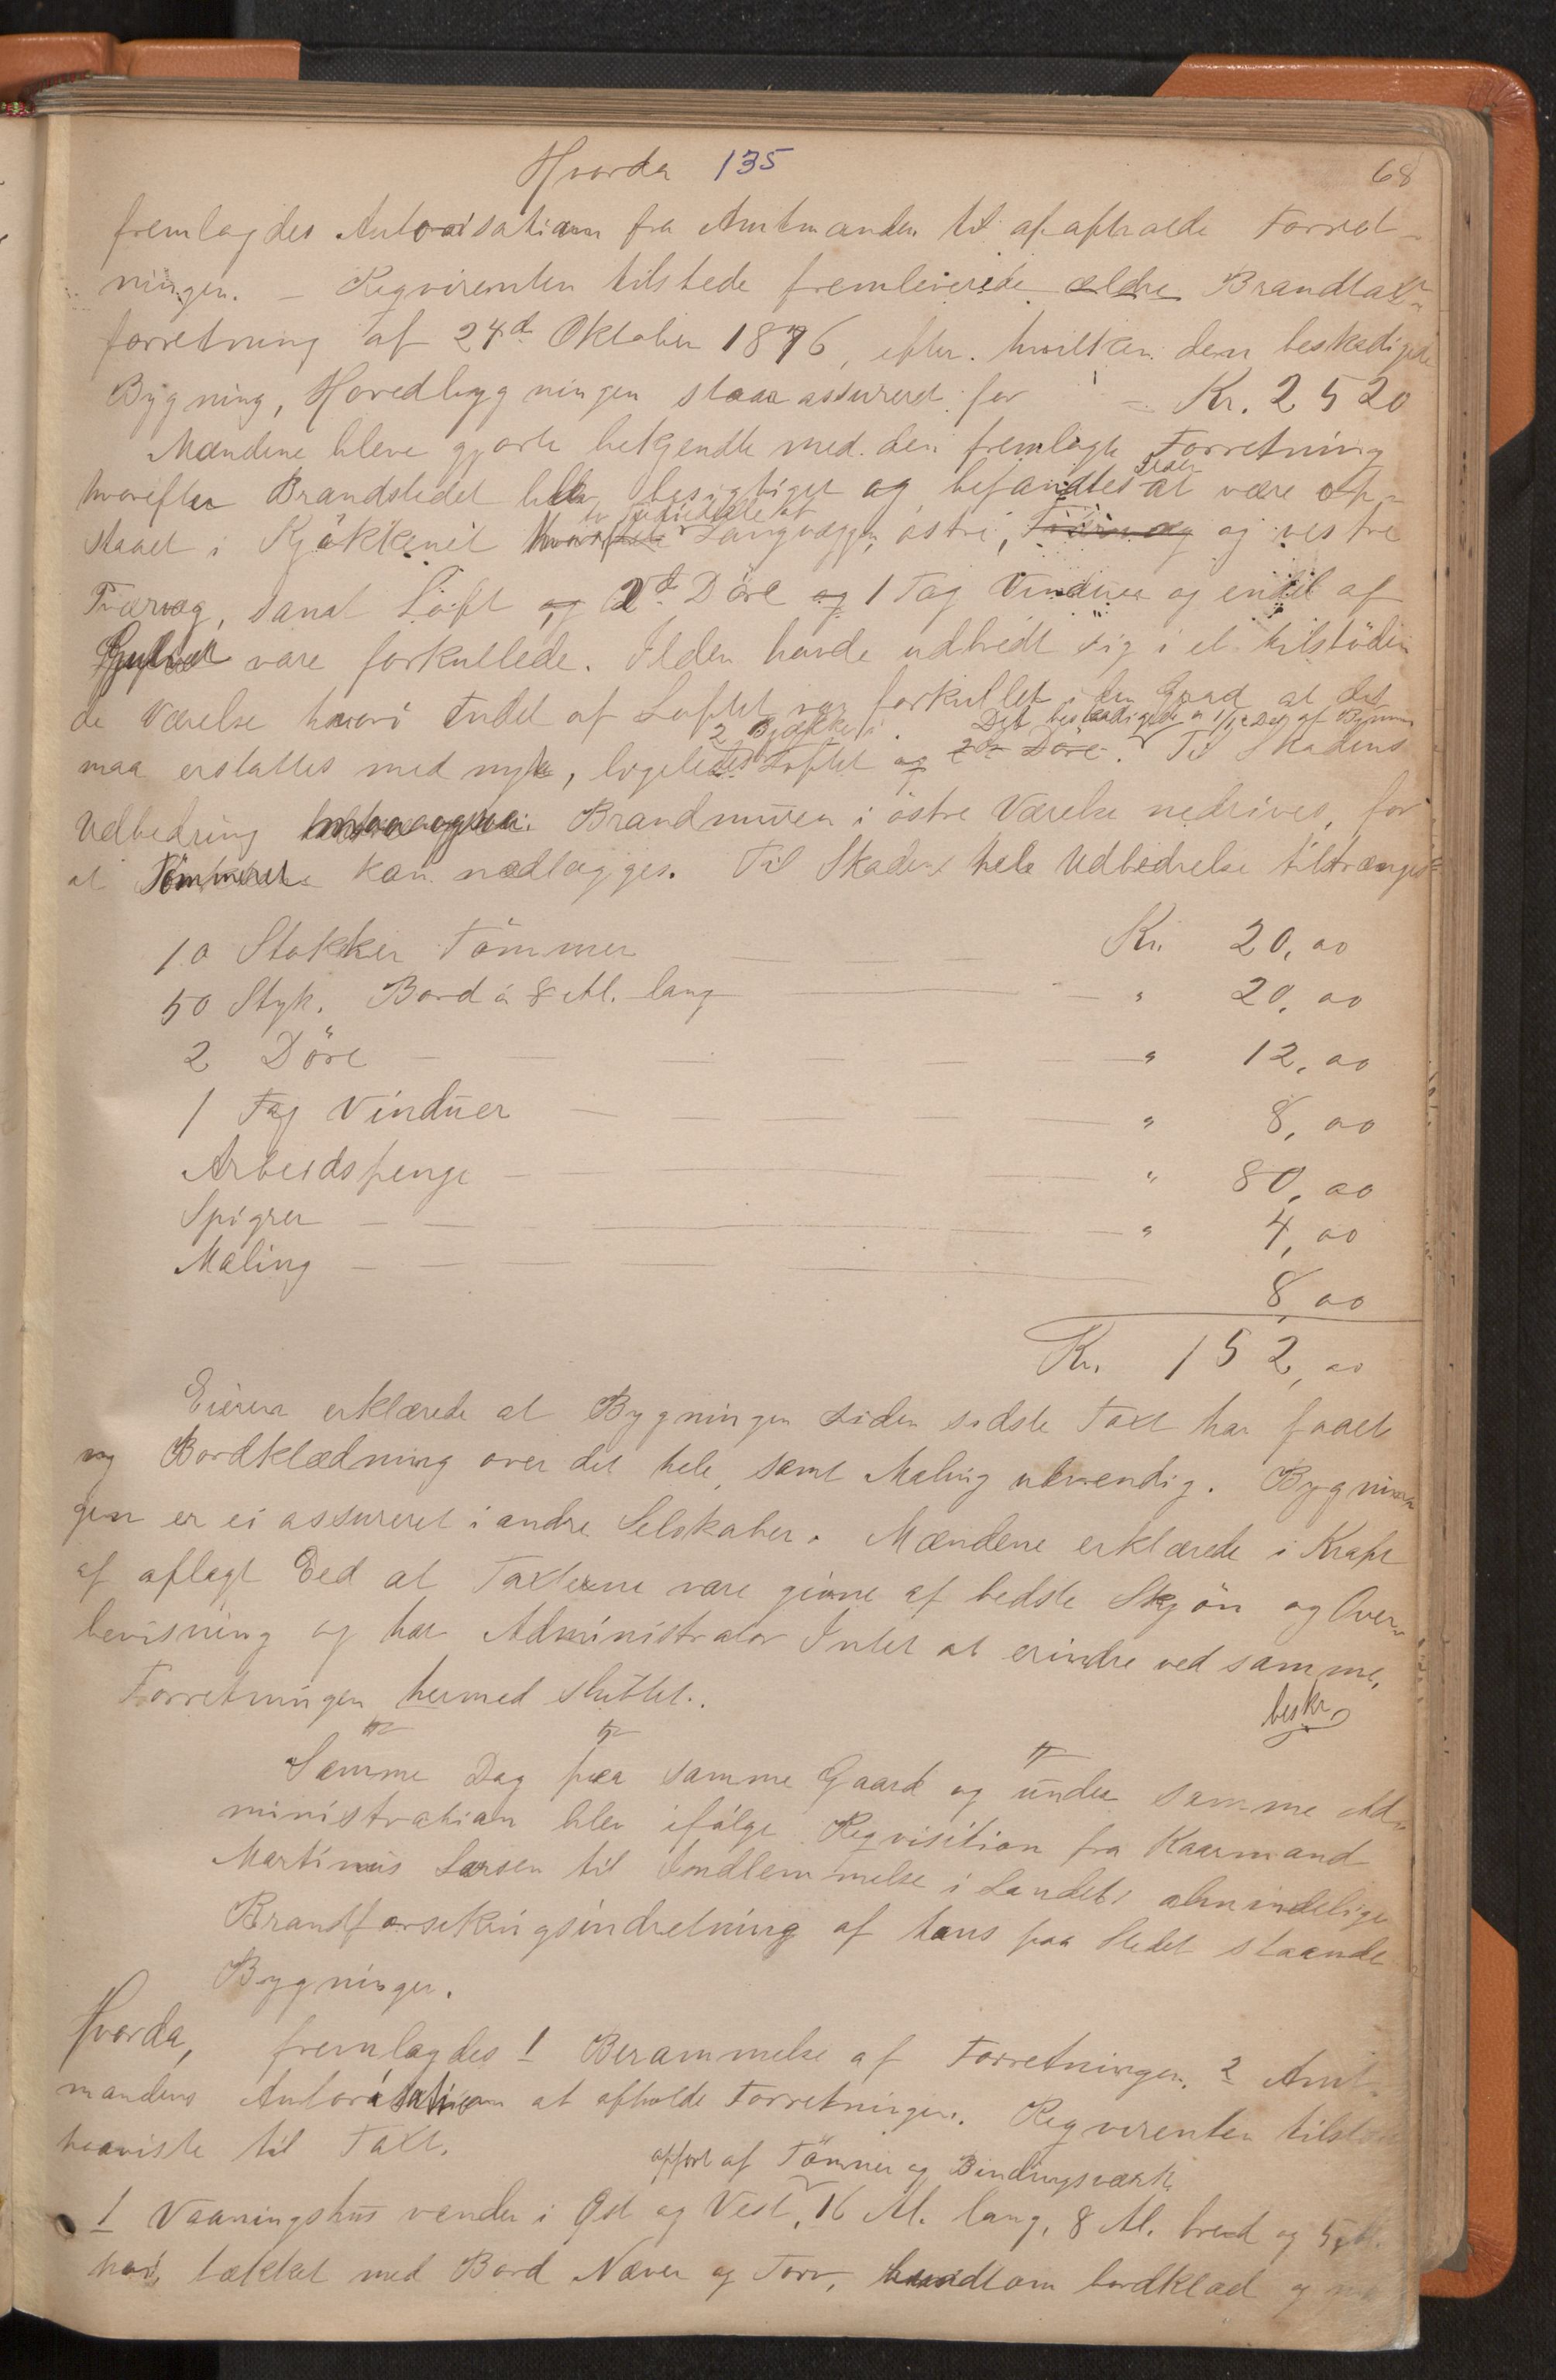 Hvorda 135 68
fremlagdes Autorisation fra Amtmanden til at afholde Forret-
ningen. - Reqvirenten tilstede fremleverede ældre Brandtaxt-
forretning af 24de Oktober 1876, efter hvilken den beskadigede
Bygning, Hovedbygningen staar assureret for - Kr. 2520
Mændene bleve gjorte bekjendte med den fremlagte Forretning
hvorefter Brandstedet blev besigtiget og befandtes Ilden at være op-
staaet i Kjøkkenet Langvæggen, østre, Tværvæg og vestre
Tværvæg, samt Loft og 2de Døre og 1 Fag Vinduer og endel af
Gulvet vare forkullede. Ilden havde udbredt sig i et tilstøden
de Værelse hvori Endel af Loftet var forkullet i den Grad at det
maa erstattes med nyt, ligeledes 2 Bjælker i Loftet og 2de Døre. Det beskadigede er 1/12 Del af Bygningen Til Skadens
Udbedring maa ogsaa Brandmuren i østre Værelse nedrives, for
at Tømmeret kan nedlægges. Til Skadens hele Udbedrelse tiltrænges
10 Stokker Tømmer — — — Kr. 20,00
50 Styk. Bord á 8 Al. lang — — " 20,00
2 Døre — — — — — — " 12,00
1 Fag Vinduer — — — — — " 8,00
Arbeidspenge — — — — " 80,00
Spigrer — — — — — " 4,00
Maling — — — — — 8,00
Kr. 152,00
Eieren erklærede at Bygningen siden sidste Taxt har faaet
ny Bordklædning over det hele, samt Maling udvendig. Bygnin-
gen er ei assureret i andre Selskaber. Mændene erklærede i Kraft
af aflagt Eed at Taxterne vare givne af bedste Skjøn og Over-
bevisning og har Administrator Intet at erindre ved samme,
Forretningen hermed sluttet.
beskr
Samme Dag paa samme Gaard og under samme Ad-
ministration blev ifølge Reqvisition fra Kaarmand
Martinus Larsen til Indlemmelse i Landets almindelige
Brandforsikringsindretning af hans paa Stedet staaende
Bygninger.
Hvorda, fremlagdes 1 Berammelse af Forretningen. 2 Amt-
mandens Autorisation at afholde Forretningen. Reqvirenten tilstede
paaviste til Taxt.
opført af Tømmer og Bindingsværk
1 Vaaningshus vender i Øst og Vest, 16 Al. lang, 8 Al. bred og 5 Al.
høi, tækket med Bord Næver og Torv, rundtom bordklæd og